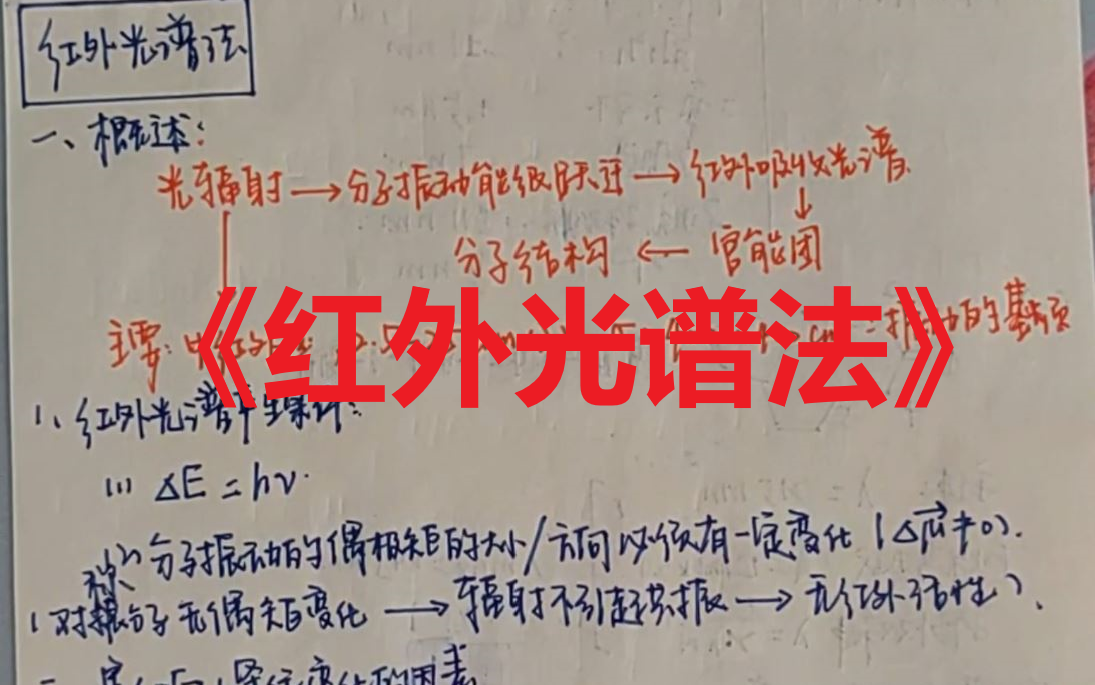 红外光谱法
一、概述：
光辐射→分子振动能级跃迁→红外吸收光谱.
↓
分子结构 ← 官能团
《红外光谱法》
主要：振动的基频
1、红外光谱产生条件：
(1) ΔE = hν.
(2) 分子振动时偶极矩的大小/方向必须有一定变化 (Δμ⃗≠0).
(对称分子无偶矩变化 → 辐射不引起共振 → 无红外活性).